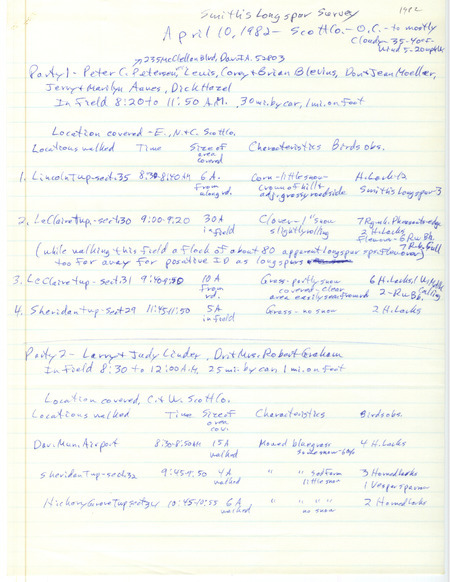 1982
Smith's Longspur Survey
April 10, 1982 - Scott Co. - O.C. - to mostly
Cloudy - 35-40°F
Wind 5-20 mph
235 McClellan Blvd, Dav. IA. 52803
Party 1 - Peter C. Petersen, Lewis, Corey & Brian Blevins, Don & Jean Moeller,
Jerry & Marilyn Aaves, Dick Hazel
In Field 8:20 to 11:50 A.M. 30 mi. by car, 1 mi. on foot
Location covered - E., N. & C. Scott Co.
Locations walked Time Size of area covered Characteristics Birds obs.
1. Lincoln Twp - sect. 35 8:30-8:40 AM 6 A. Corn - little snow H. Lark - 12
From along rd. Crown of hill & adj. grassy roadside Smith's Longspur - 3
2. LeClaire twp. - sect 30 9:00-9:20 30 A Clover - 1" snow 7 Rg-nk. Pheasants - edge
in field slightly rolling 2 H. Larks
Flew over - 6 Rw Bb.
7 R-b. Gull
(while walking this field a flock of about 80 apparent longspur spp. flew over)
too far away for positive ID as longspurs
3. LeClaire twp. - sect. 31 9:40-9:50 10 A Grass - partly snow 6 H. Larks, 1
From rd. covered - clear area easily seen from rds 2 - Rw Bb.
4. Sheridan twp - sect 29 11:45-11:50 5 A Grass - no snow 2 H. Larks
in field
Party 2 - Larry & Judy Linder, Dr. & Mrs. Robert Graham
In Field 8:30 to 12:00 A.M. 25 mi. by car, 1 mi. on foot
Location covered, C. & W. Scott Co.
Locations walked Time Size of area cov. Characteristics Birds obs.
Dav. Mun. Airport 8:30-8:50 AM 15 A Mowed bluegrass 4 H. Larks
walked
Sheridan twp - sect 32 9:45-9:50 4 A " " Sod Farm 3 Horned Larks
walked little snow 1 Vesper Sparrow
Hickory Grove Twp sect 24 10:45-10:55 6 A " " " " 2 Horned Larks
walked no snow